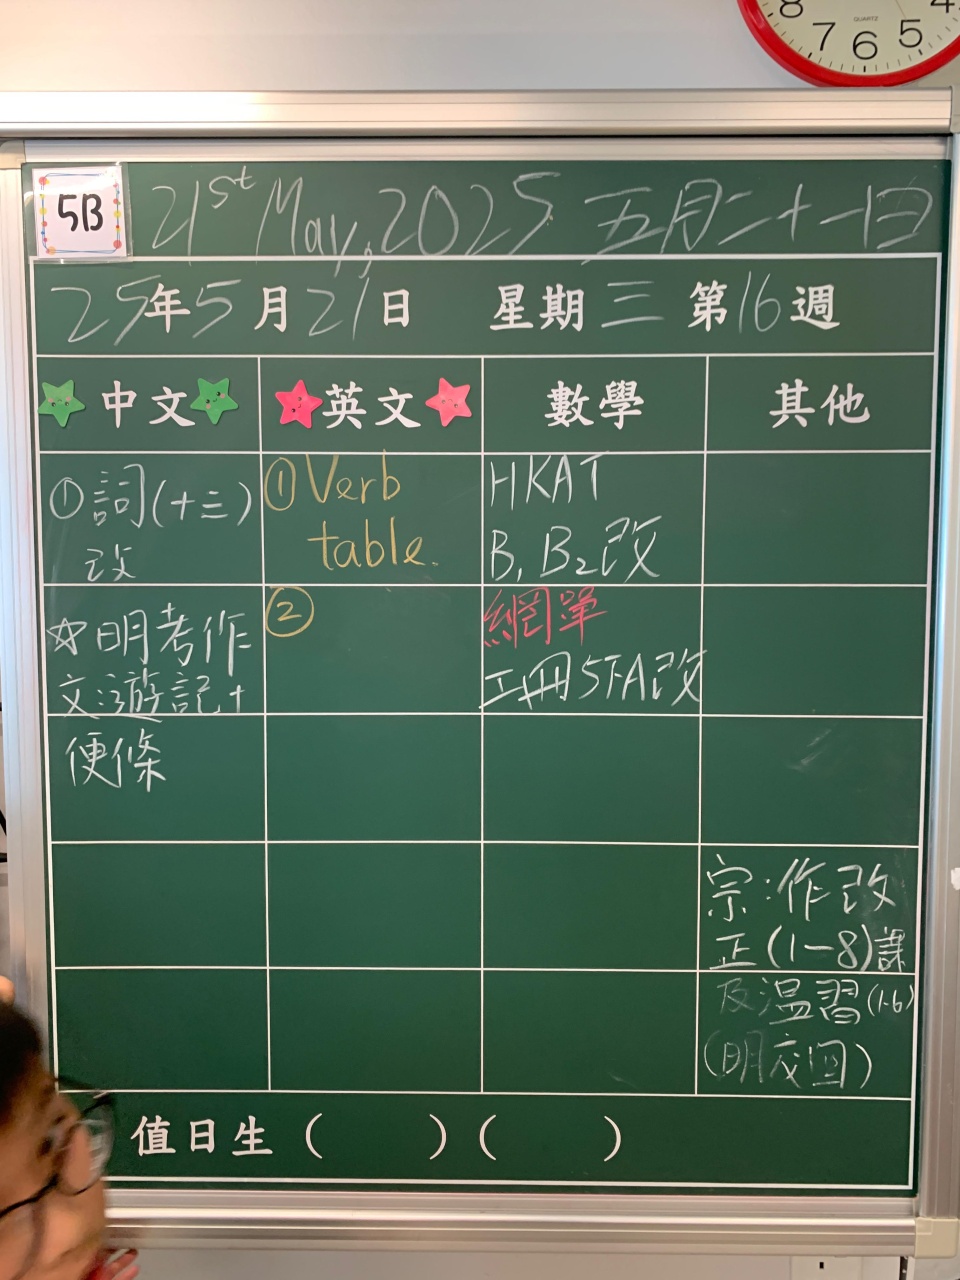 8 7 6 5 4
QUARTZ
5B
21st May, 2025 五月二十一日
25年5月21日 星期三 第16週
中文 英文 數學 其他
①詞(十三)
改
①Verb
table.
HKAT
B1 B2改
☆明考作
文:遊記+
便條
②
網單
工冊STA改
宗:作改
正(1-8)課
及溫習(1-6)
(明交回)
值日生 ( ) ( )